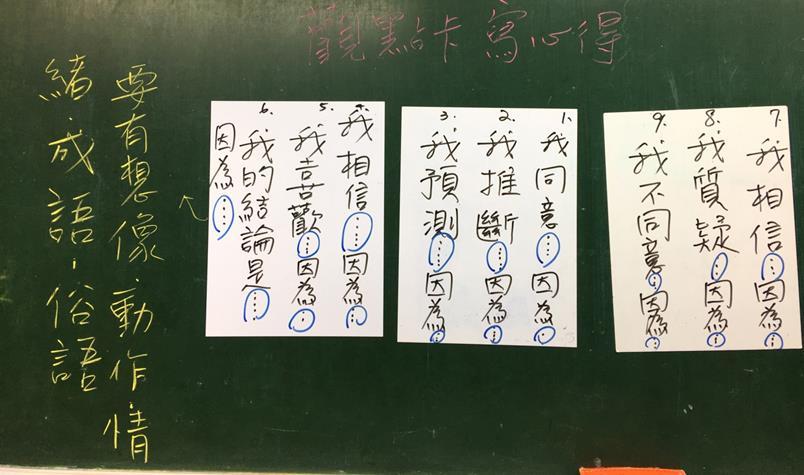 觀點卡寫心得
1. 我同意……因為…
2. 我推斷……因為…
3. 我預測……因為…
4. 我相信……因為…
5. 我喜歡……因為…
6. 我的結論是……
因為……
7. 我相信…因為…
8. 我質疑…因為…
9. 我不同意…因為…
要有想像、動作情
緒、成語、俗語